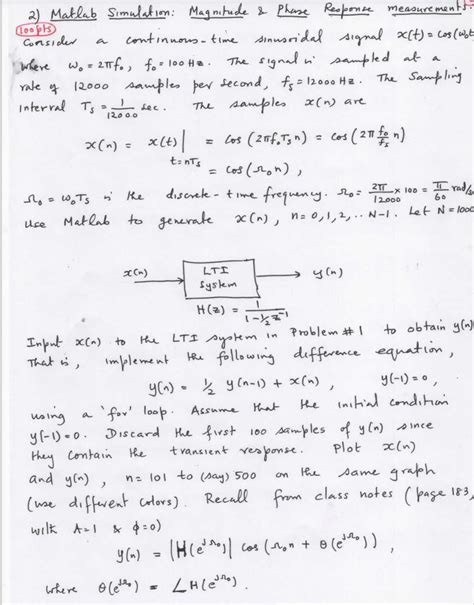 2) Matlab Simulation: Magnitude & Phase Response measurements.
(100pts)
Consider a continuous-time sinusoidal signal x(t) = cos(ω₀t
where ω₀ = 2πf₀, f₀ = 100 Hz. The signal is sampled at a
rate of 12000 samples per second, fₛ = 12000 Hz. The Sampling
interval Tₛ = 1/12000 sec. The samples x(n) are
x(n) = x(t)| t=nTₛ = cos(2πf₀Tₛn) = cos(2π f₀/fₛ n)
= cos(Ω₀n),
Ω₀ = ω₀Tₛ is the discrete-time frequency. Ω₀ = 2π/12000 × 100 = π/60 rad/s
Use Matlab to generate x(n), n = 0,1,2,.. N-1. Let N = 1000
x(n) → LTI System → y(n)
H(z) = 1/(1-½z⁻¹)
Input x(n) to the LTI system in Problem #1 to obtain y(n)
That is, implement the following difference equation,
y(n) = ½ y(n-1) + x(n), y(-1) = 0,
using a 'for' loop. Assume that the initial condition
y(-1) = 0. Discard the first 100 samples of y(n) since
they contain the transient response. Plot x(n)
and y(n), n = 101 to (say) 500 on the same graph
(use different colors). Recall from class notes (page 183,
with A=1 & ϕ=0)
y(n) = |H(e^{jΩ₀})| cos(Ω₀n + θ(e^{jΩ₀})),
where θ(e^{jΩ₀}) = ∠H(e^{jΩ₀}).